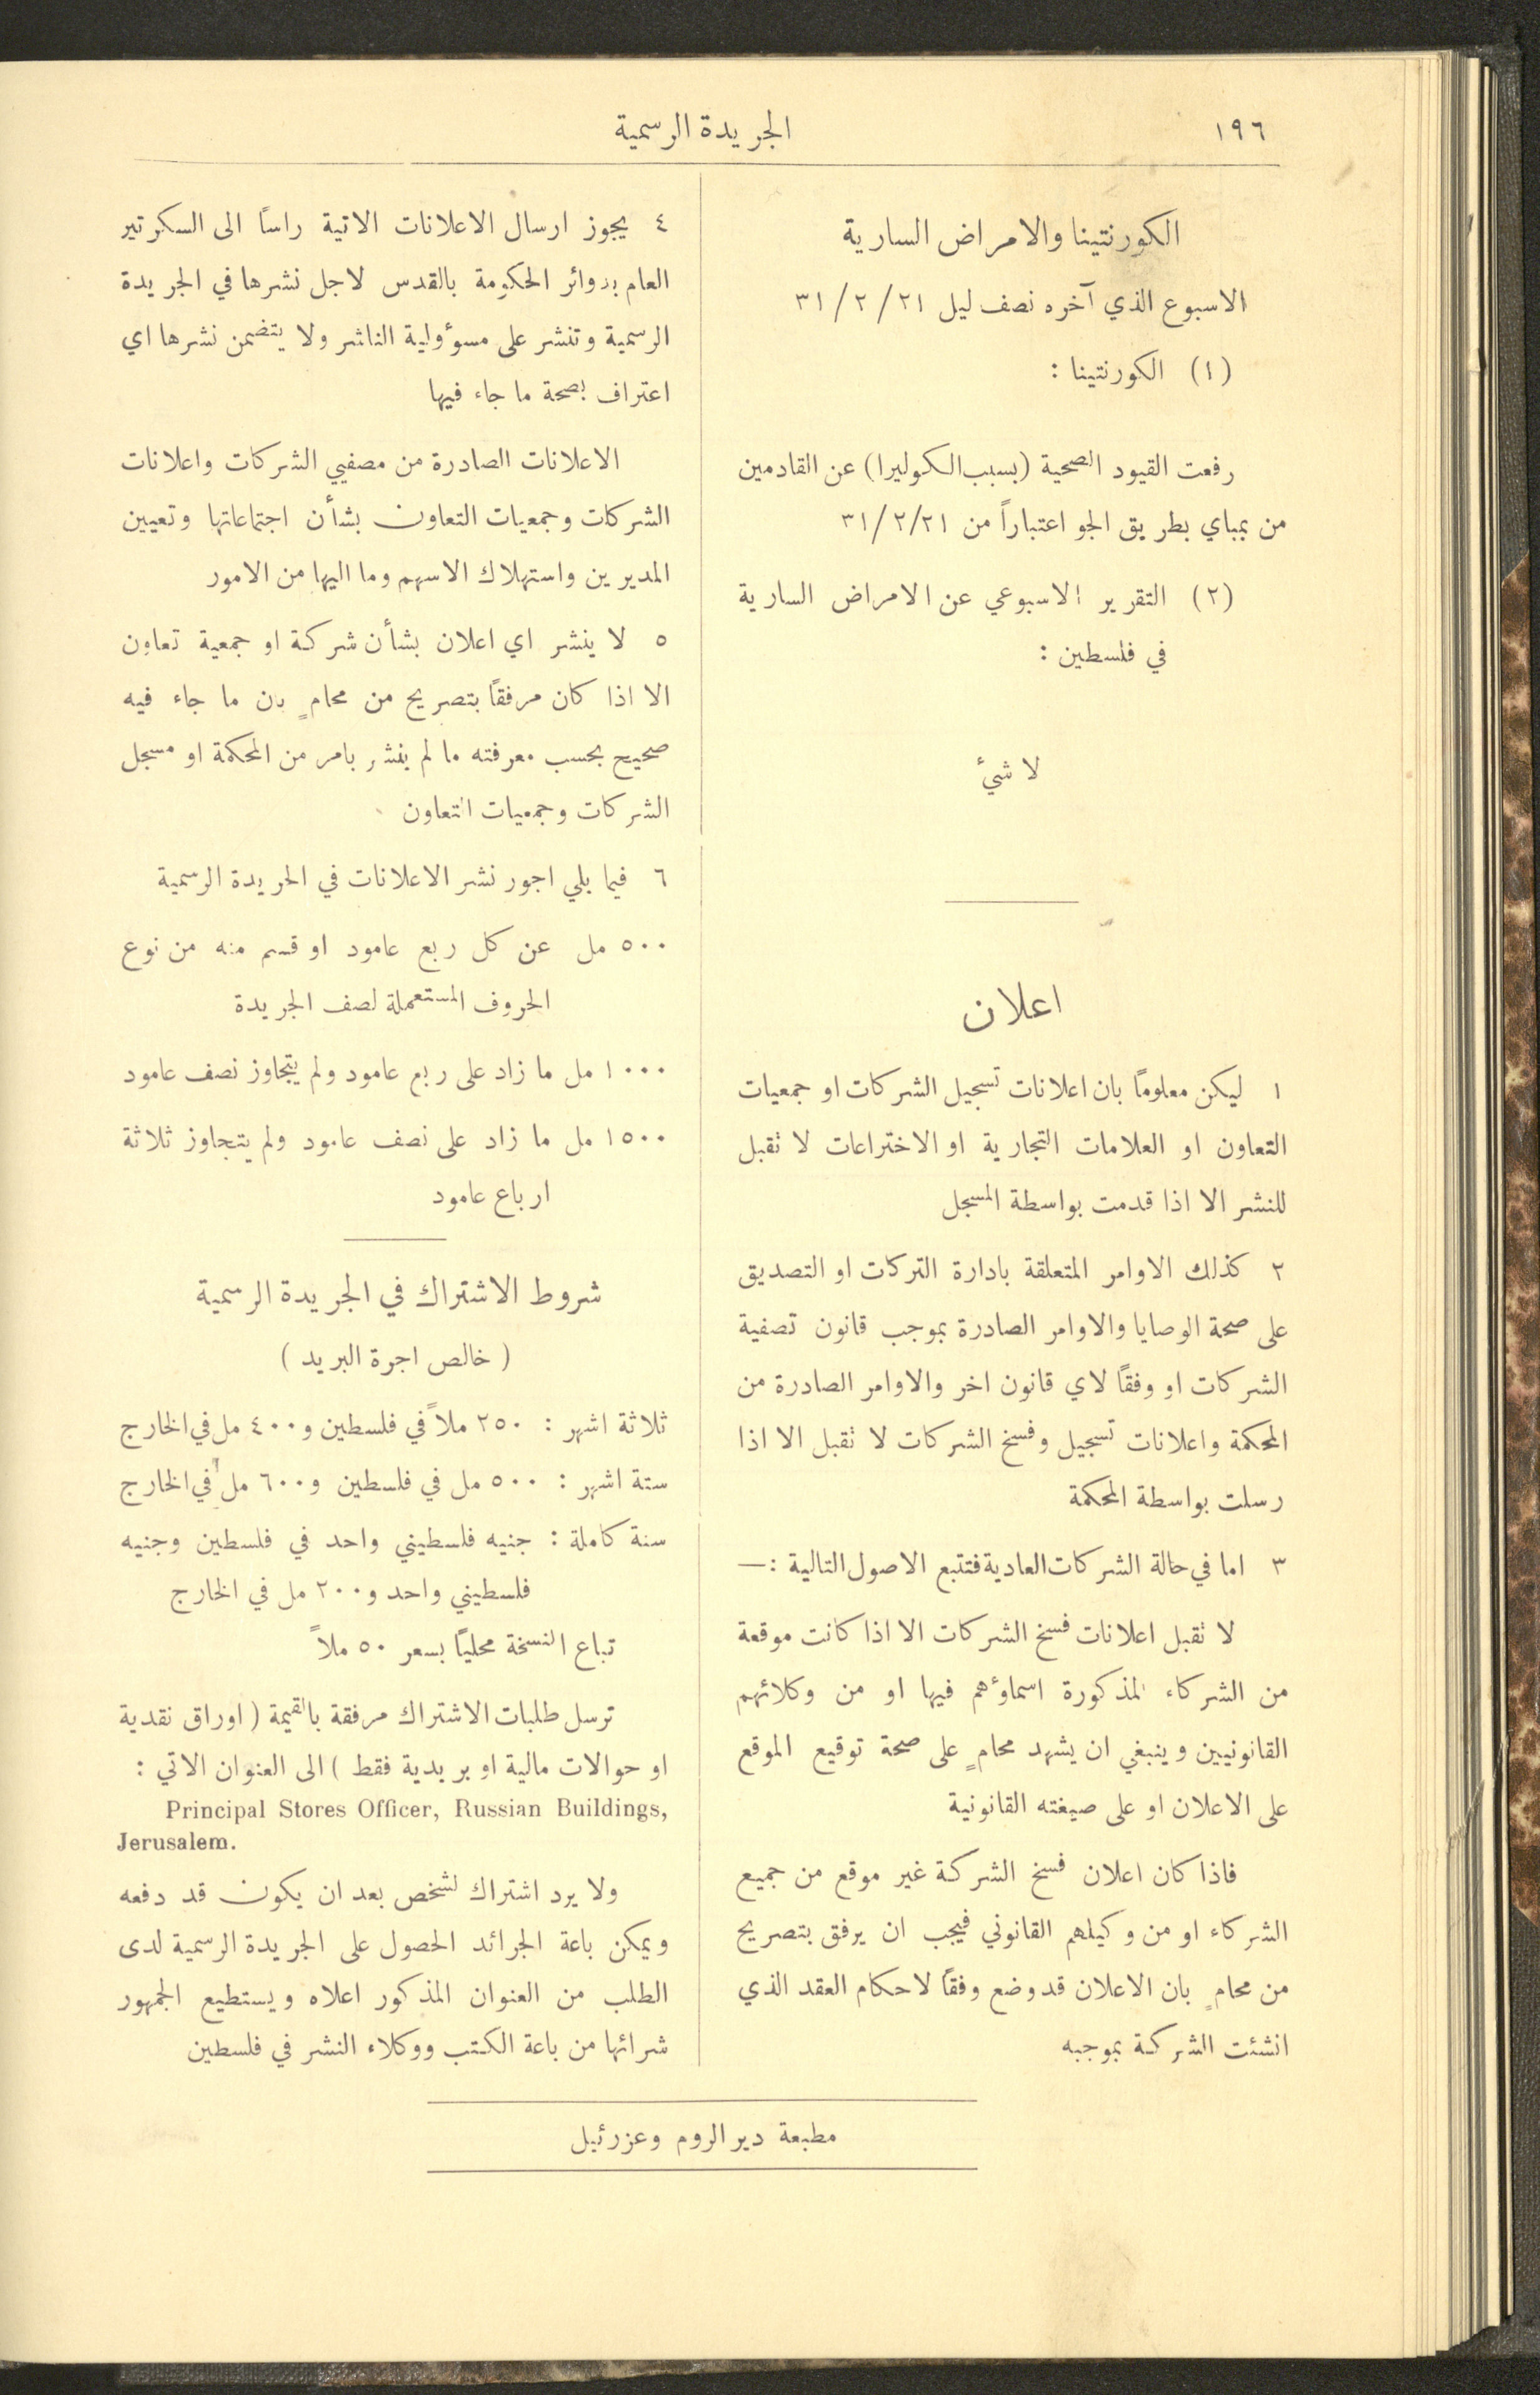 ١٩٦
الجريدة الرسمية
الكورنتينا والامراض السارية
الاسبوع الذي آخره نصف ليل ٢١/ ٢/ ٣١
(١) الكورنتينا :
رفعت القيود الصحية (بسبب الكوليرا) عن القادمين
من بمباي بطريق الجو اعتباراً من ٢١/ ٢/ ٣١
(٢) التقرير الاسبوعي عن الامراض السارية
في فلسطين :
لا شيْ
اعلان
١ ليكن معلومًا بان اعلانات تسجيل الشركات او جمعيات
التعاون او العلامات التجارية او الاختراعات لا تقبل
للنشر الا اذا قدمت بواسطة المسجل
٢ كذلك الاوامر المتعلقة بادارة التركات او التصديق
على صحة الوصايا والاوامر الصادرة بموجب قانون تصفية
الشركات او وفقًا لاي قانون اخر والاوامر الصادرة من
المحكمة واعلانات تسجيل وفسخ الشركات لا تقبل الا اذا
رسلت بواسطة المحكمة
٣ اما في حالة الشركات العادية فتتبع الاصول التالية :—
لا تقبل اعلانات فسخ الشركات الا اذا كانت موقعة
من الشركاء المذكورة اسماؤهم فيها او من وكلائهم
القانونيين وينبغي ان يشهد محامٍ على صحة توقيع الموقع
على الاعلان او على صيغته القانونية
فاذا كان اعلان فسخ الشركة غير موقع من جميع
الشركاء او من وكيلهم القانوني فيجب ان يرفق بتصريح
من محامٍ بان الاعلان قد وضع وفقًا لاحكام العقد الذي
انشئت الشركة بموجبه
٤ يجوز ارسال الاعلانات الاتية راسًا الى السكرتير
العام بدوائر الحكومة بالقدس لاجل نشرها في الجريدة
الرسمية وتنشر على مسؤولية الناشر ولا يتضمن نشرها اي
اعتراف بصحة ما جاء فيها
الاعلانات الصادرة من مصفيي الشركات واعلانات
الشركات وجمعيات التعاون بشأن اجتماعاتها وتعيين
المديرين واستهلاك الاسهم وما اليها من الامور
٥ لا ينشر اي اعلان بشأن شركة او جمعية تعاون
الا اذا كان مرفقًا بتصريح من محامٍ بان ما جاء فيه
صحيح بحسب معرفته ما لم ينشر بامر من المحكمة او مسجل
الشركات وجمعيات التعاون
٦ فيما يلي اجور نشر الاعلانات في الجريدة الرسمية
٥٠٠ مل عن كل ربع عامود او قسم منه من نوع
الحروف المستعملة لصف الجريدة
١٠٠٠ مل ما زاد على ربع عامود ولم يتجاوز نصف عامود
١٥٠٠ مل ما زاد على نصف عامود ولم يتجاوز ثلاثة
ارباع عامود
شروط الاشتراك في الجريدة الرسمية
( خالص اجرة البريد )
ثلاثة اشهر : ٢٥٠ ملاً في فلسطين و٤٠٠ مل في الخارج
ستة اشهر : ٥٠٠ مل في فلسطين و٦٠٠ مل في الخارج
سنة كاملة : جنيه فلسطيني واحد في فلسطين وجنيه
فلسطيني واحد و٢٠٠ مل في الخارج
تباع النسخة محليًا بسعر ٥٠ ملاً
ترسل طلبات الاشتراك مرفقة بالقيمة ( اوراق نقدية
او حوالات مالية او بريدية فقط ) الى العنوان الاتي :
Principal Stores Officer, Russian Buildings,
Jerusalem.
ولا يرد اشتراك لشخص بعد ان يكون قد دفعه
ويمكن باعة الجرائد الحصول على الجريدة الرسمية لدى
الطلب من العنوان المذكور اعلاه ويستطيع الجمهور
شرائها من باعة الكتب ووكلاء النشر في فلسطين
مطبعة دير الروم وعزرئيل